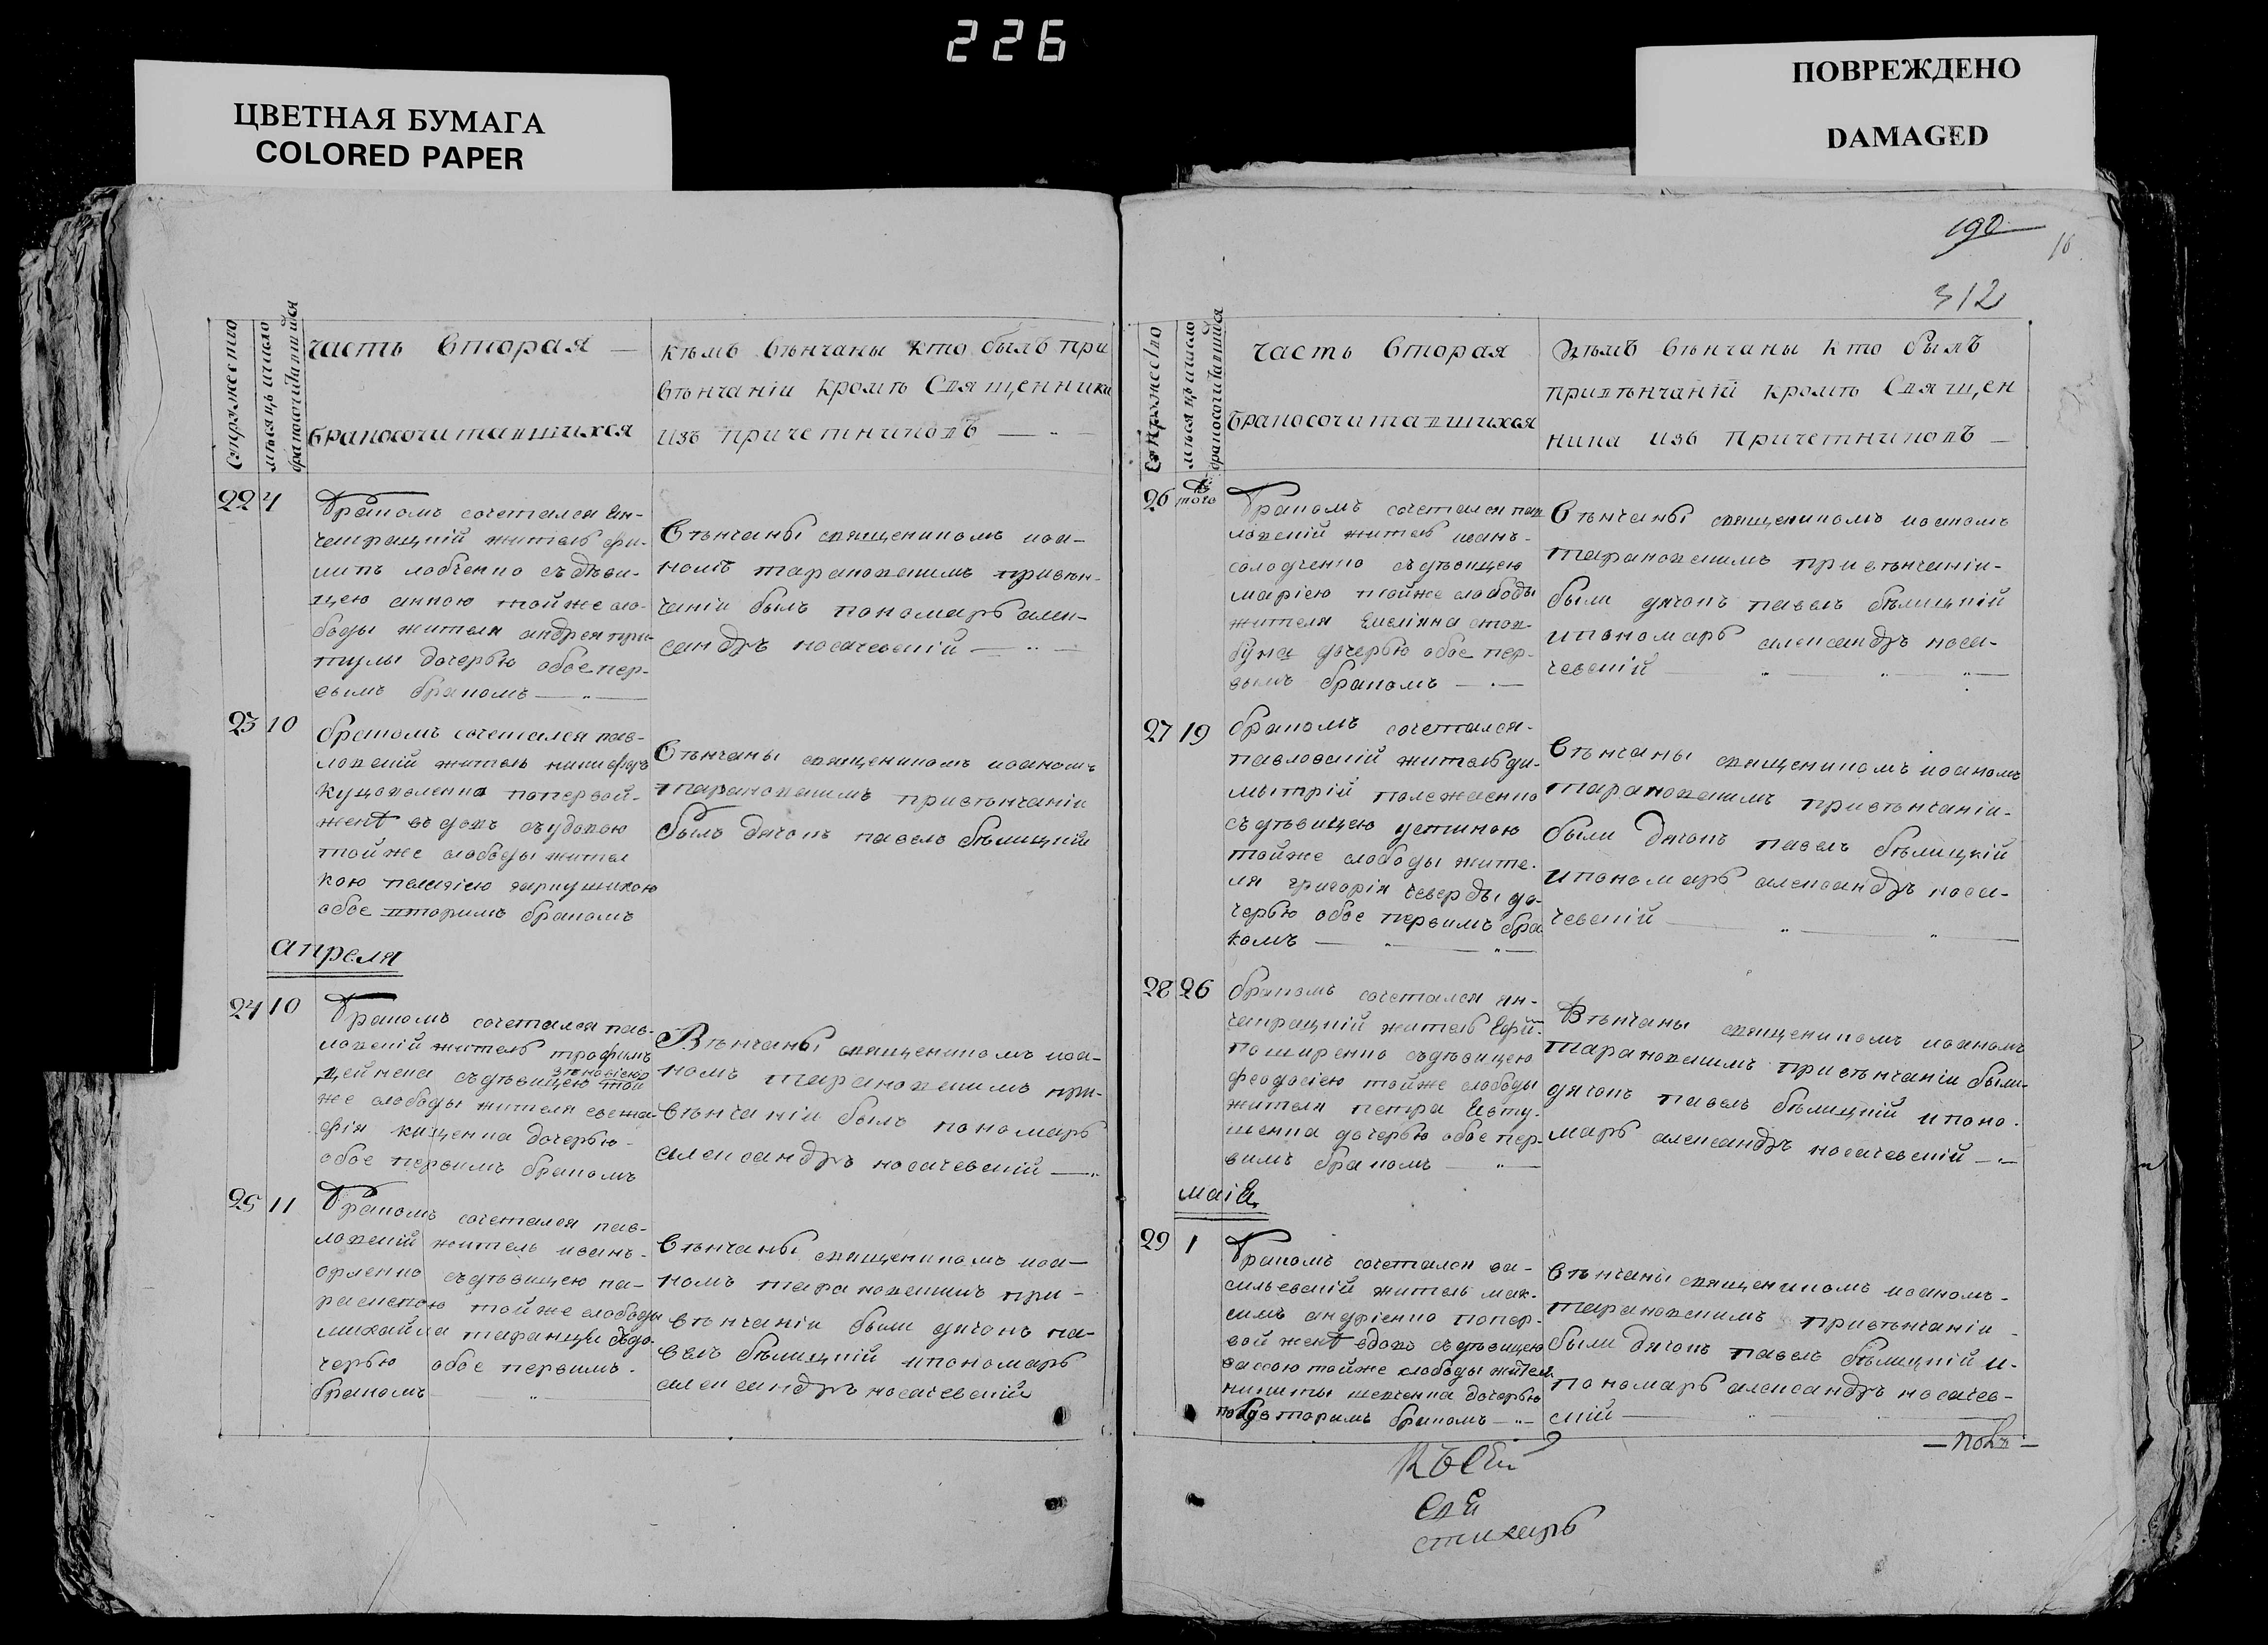 226
ЦВЕТНАЯ БУМАГА
COLORED PAPER
ПОВРЕЖДЕНО
DAMAGED
190
16
312
мѣсяцъ и число
бракосочитавшихся
часть вторая —
бракосочитавшихся
кѣмъ вѣнчаны кто былъ при
вѣнчаніи кромѣ Священника
изъ причетниковъ —
22 4
Бракомъ сочетался ян-
чекрацкій житель фи-
липъ лобченко съ дѣви-
цею анною тойже сло-
боды жителя андрея при-
тулы дочерью обое пер-
вымъ бракомъ —
Вѣнчаны священикомъ иоа-
номъ тарановскимъ привѣн-
чаніи былъ пономарь алек-
сандръ носачевскій —
23 10
бракомъ сочетался пав-
ловскій житель никифоръ
куцоволенко попервой
женѣ вдовъ съудовою
тойже слободы жител
кою пелагіею
обое вторимъ бракомъ
Вѣнчаны священикомъ иоаномъ
тарановскимъ привѣнчаніи
былъ дячокъ павелъ бѣлицкій
апреля
24 10
Бракомъ сочетался пав-
ловскій житель трофимъ
цейнека съдѣвицею зѣновіею той
же слободы жителя евста-
фія кищенка дочерью
обое первимъ бракомъ
Вѣнчаны священикомъ иоа-
номъ тарановскимъ при-
вѣнчаніи былъ пономарь
александръ носачевскій —
25 11
Бракомъ сочетался пав-
ловскій житель иванъ
орленко съдѣвицею па-
раскевою тойже слободы
михайла таранци до-
черью обое первимъ
бракомъ —
вѣнчаны священикомъ иоа-
номъ тарановскимъ при-
вѣнчаніи были дячокъ па-
велъ бѣлицкій ипономарь
александръ носачевскій
мѣсяцъ и число
бракосочитавшихся
часть вторая
бракосочитавшихся
кѣмъ вѣнчаны кто былъ
привѣнчаній кромѣ Священ
ника изъ Причетниковъ —
26 того
Бракомъ сочетался пав
ловскій житель иванъ
солодченко съдѣвицею
маріею тойже слободы
жителя Емеліяна стов-
буна дочерью обое пер-
вымъ бракомъ —
Вѣнчаны священикомъ иоаномъ
тарановскимъ привѣнчаніи
были дячокъ павелъ бѣлицкій
ипономарь александръ носа-
чевскій —
27 19
бракомъ сочетался
павловскій житель ди-
митрій полежаенко
съдѣвицею устиною
тойже слободы жите-
ля григорія чеверды до-
черью обое первимъ бра
комъ —
вѣнчаны священикомъ иоаномъ
тарановскимъ привѣнчаніи
были дячокъ павелъ бѣлицкій
ипономарь александръ носа-
чевскій —
28 26
бракомъ сочетался ян-
чекрацкій житель Ефим
поширенко съдѣвицею
феодосіею тойже слободы
жителя петра Евту-
шенка дочерью обое пер-
вимъ бракомъ —
Вѣнчаны священикомъ иоаномъ
тарановскимъ привѣнчаніи были
дячокъ павелъ бѣлицкій ипоно-
марь александръ носачевскій —
маія
29 1
Бракомъ сочетался ва-
сильевскій житель мак-
симъ андріенко попер-
вой женѣ вдовъ съдѣвицею
вассою тойже слободы жителя
никиты шевченка дочерью
вторимъ бракомъ —
вѣнчаны священикомъ иоаномъ
тарановскимъ привѣнчаніи
были дячокъ павелъ бѣлицкій и-
пономарь александръ носачев-
скій —
къ сей
стихарь